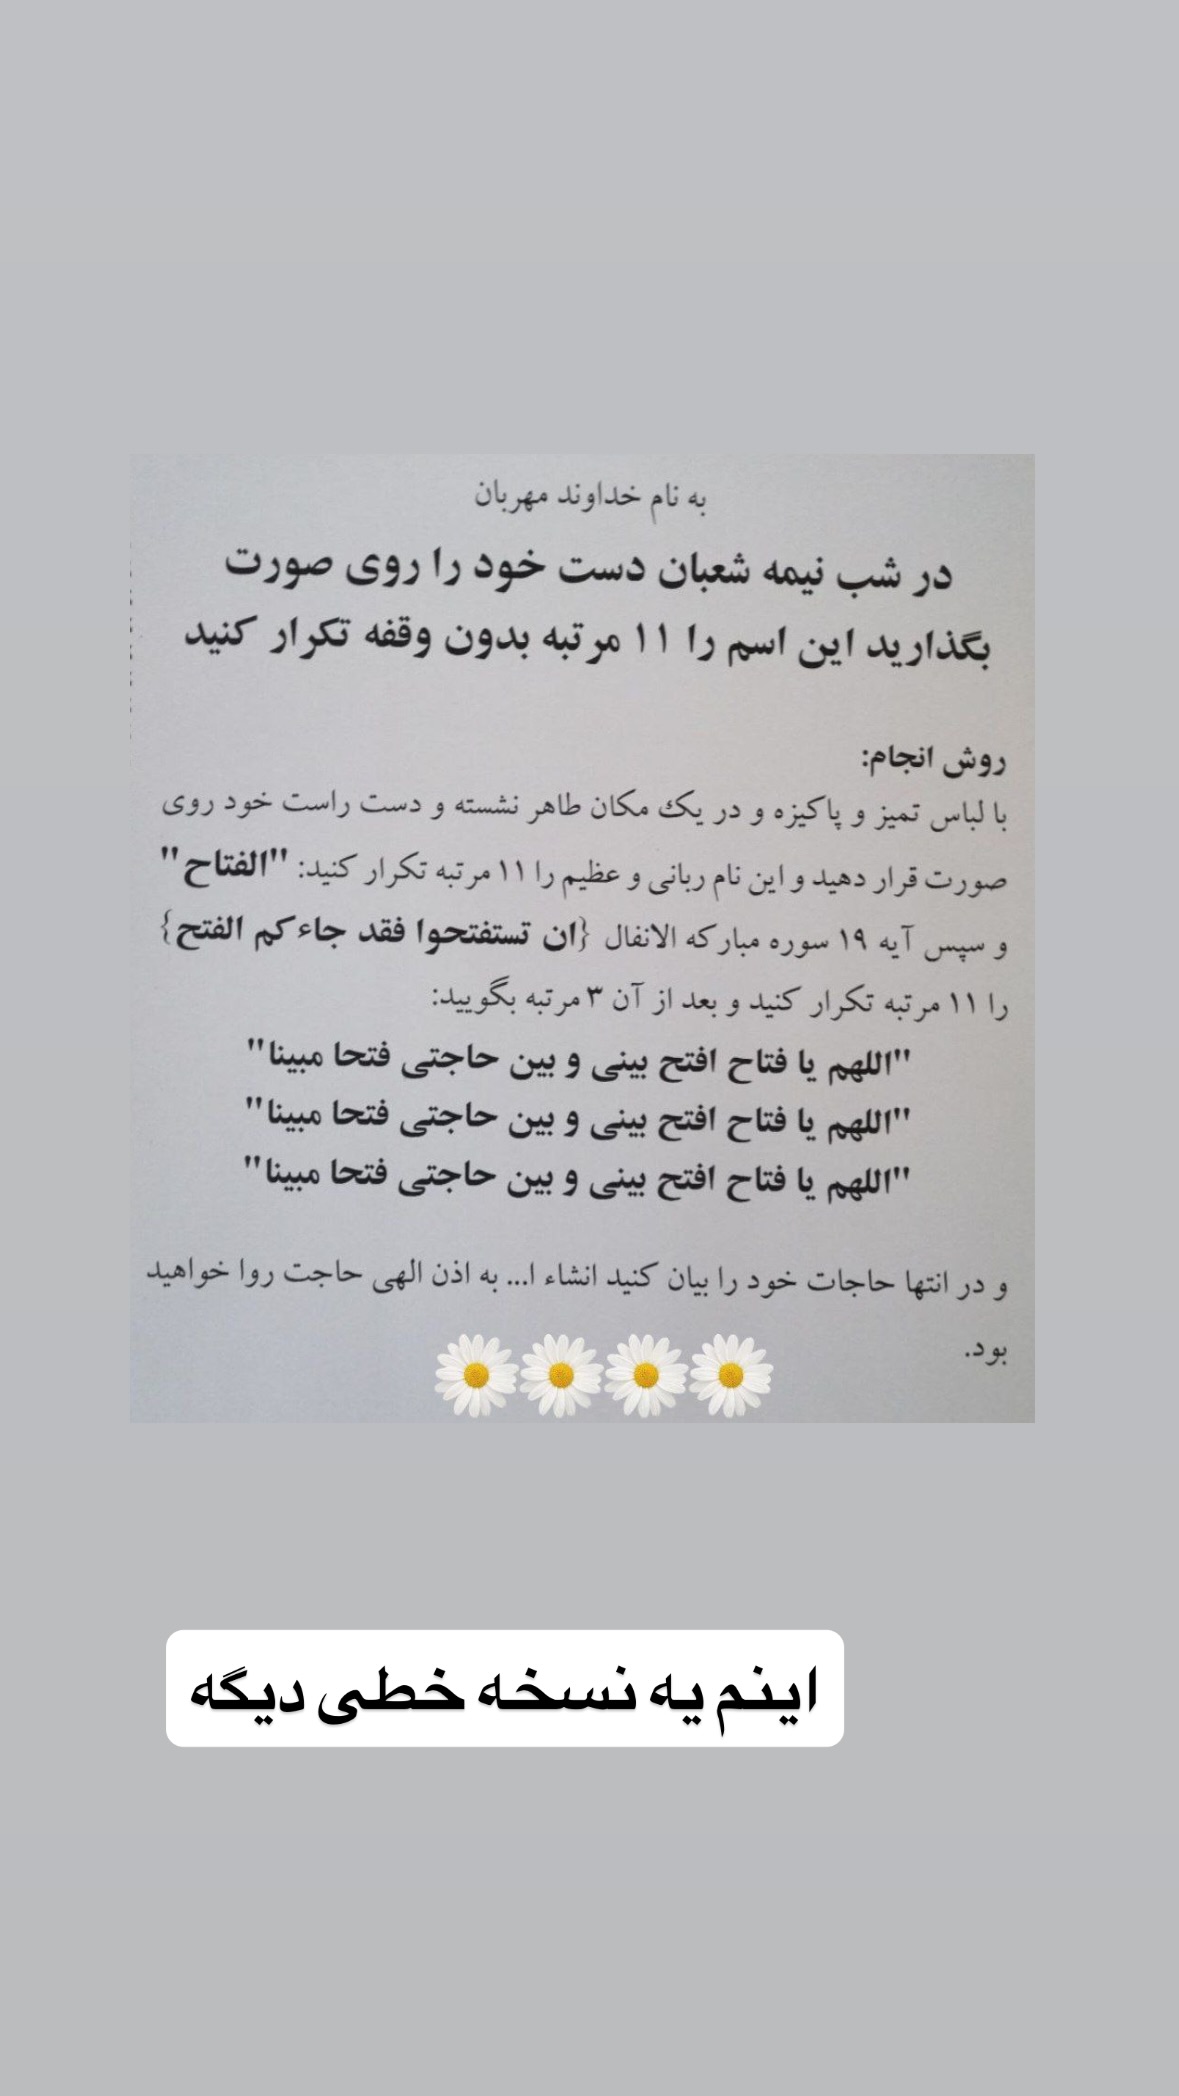 به نام خداوند مهربان
در شب نیمه شعبان دست خود را روی صورت
بگذارید این اسم را ۱۱ مرتبه بدون وقفه تکرار کنید
روش انجام:
با لباس تمیز و پاکیزه و در یک مکان طاهر نشسته و دست راست خود روی
صورت قرار دهید و این نام ربانی و عظیم را ۱۱ مرتبه تکرار کنید: "الفتاح"
و سپس آیه ۱۹ سوره مبارکه الانفال {ان تستفتحوا فقد جاءکم الفتح}
را ۱۱ مرتبه تکرار کنید و بعد از آن ۳ مرتبه بگویید:
"اللهم یا فتاح افتح بینی و بین حاجتی فتحا مبینا"
"اللهم یا فتاح افتح بینی و بین حاجتی فتحا مبینا"
"اللهم یا فتاح افتح بینی و بین حاجتی فتحا مبینا"
و در انتها حاجات خود را بیان کنید انشاء ا... به اذن الهی حاجت روا خواهید
بود.
اینم یه نسخه خطی دیگه